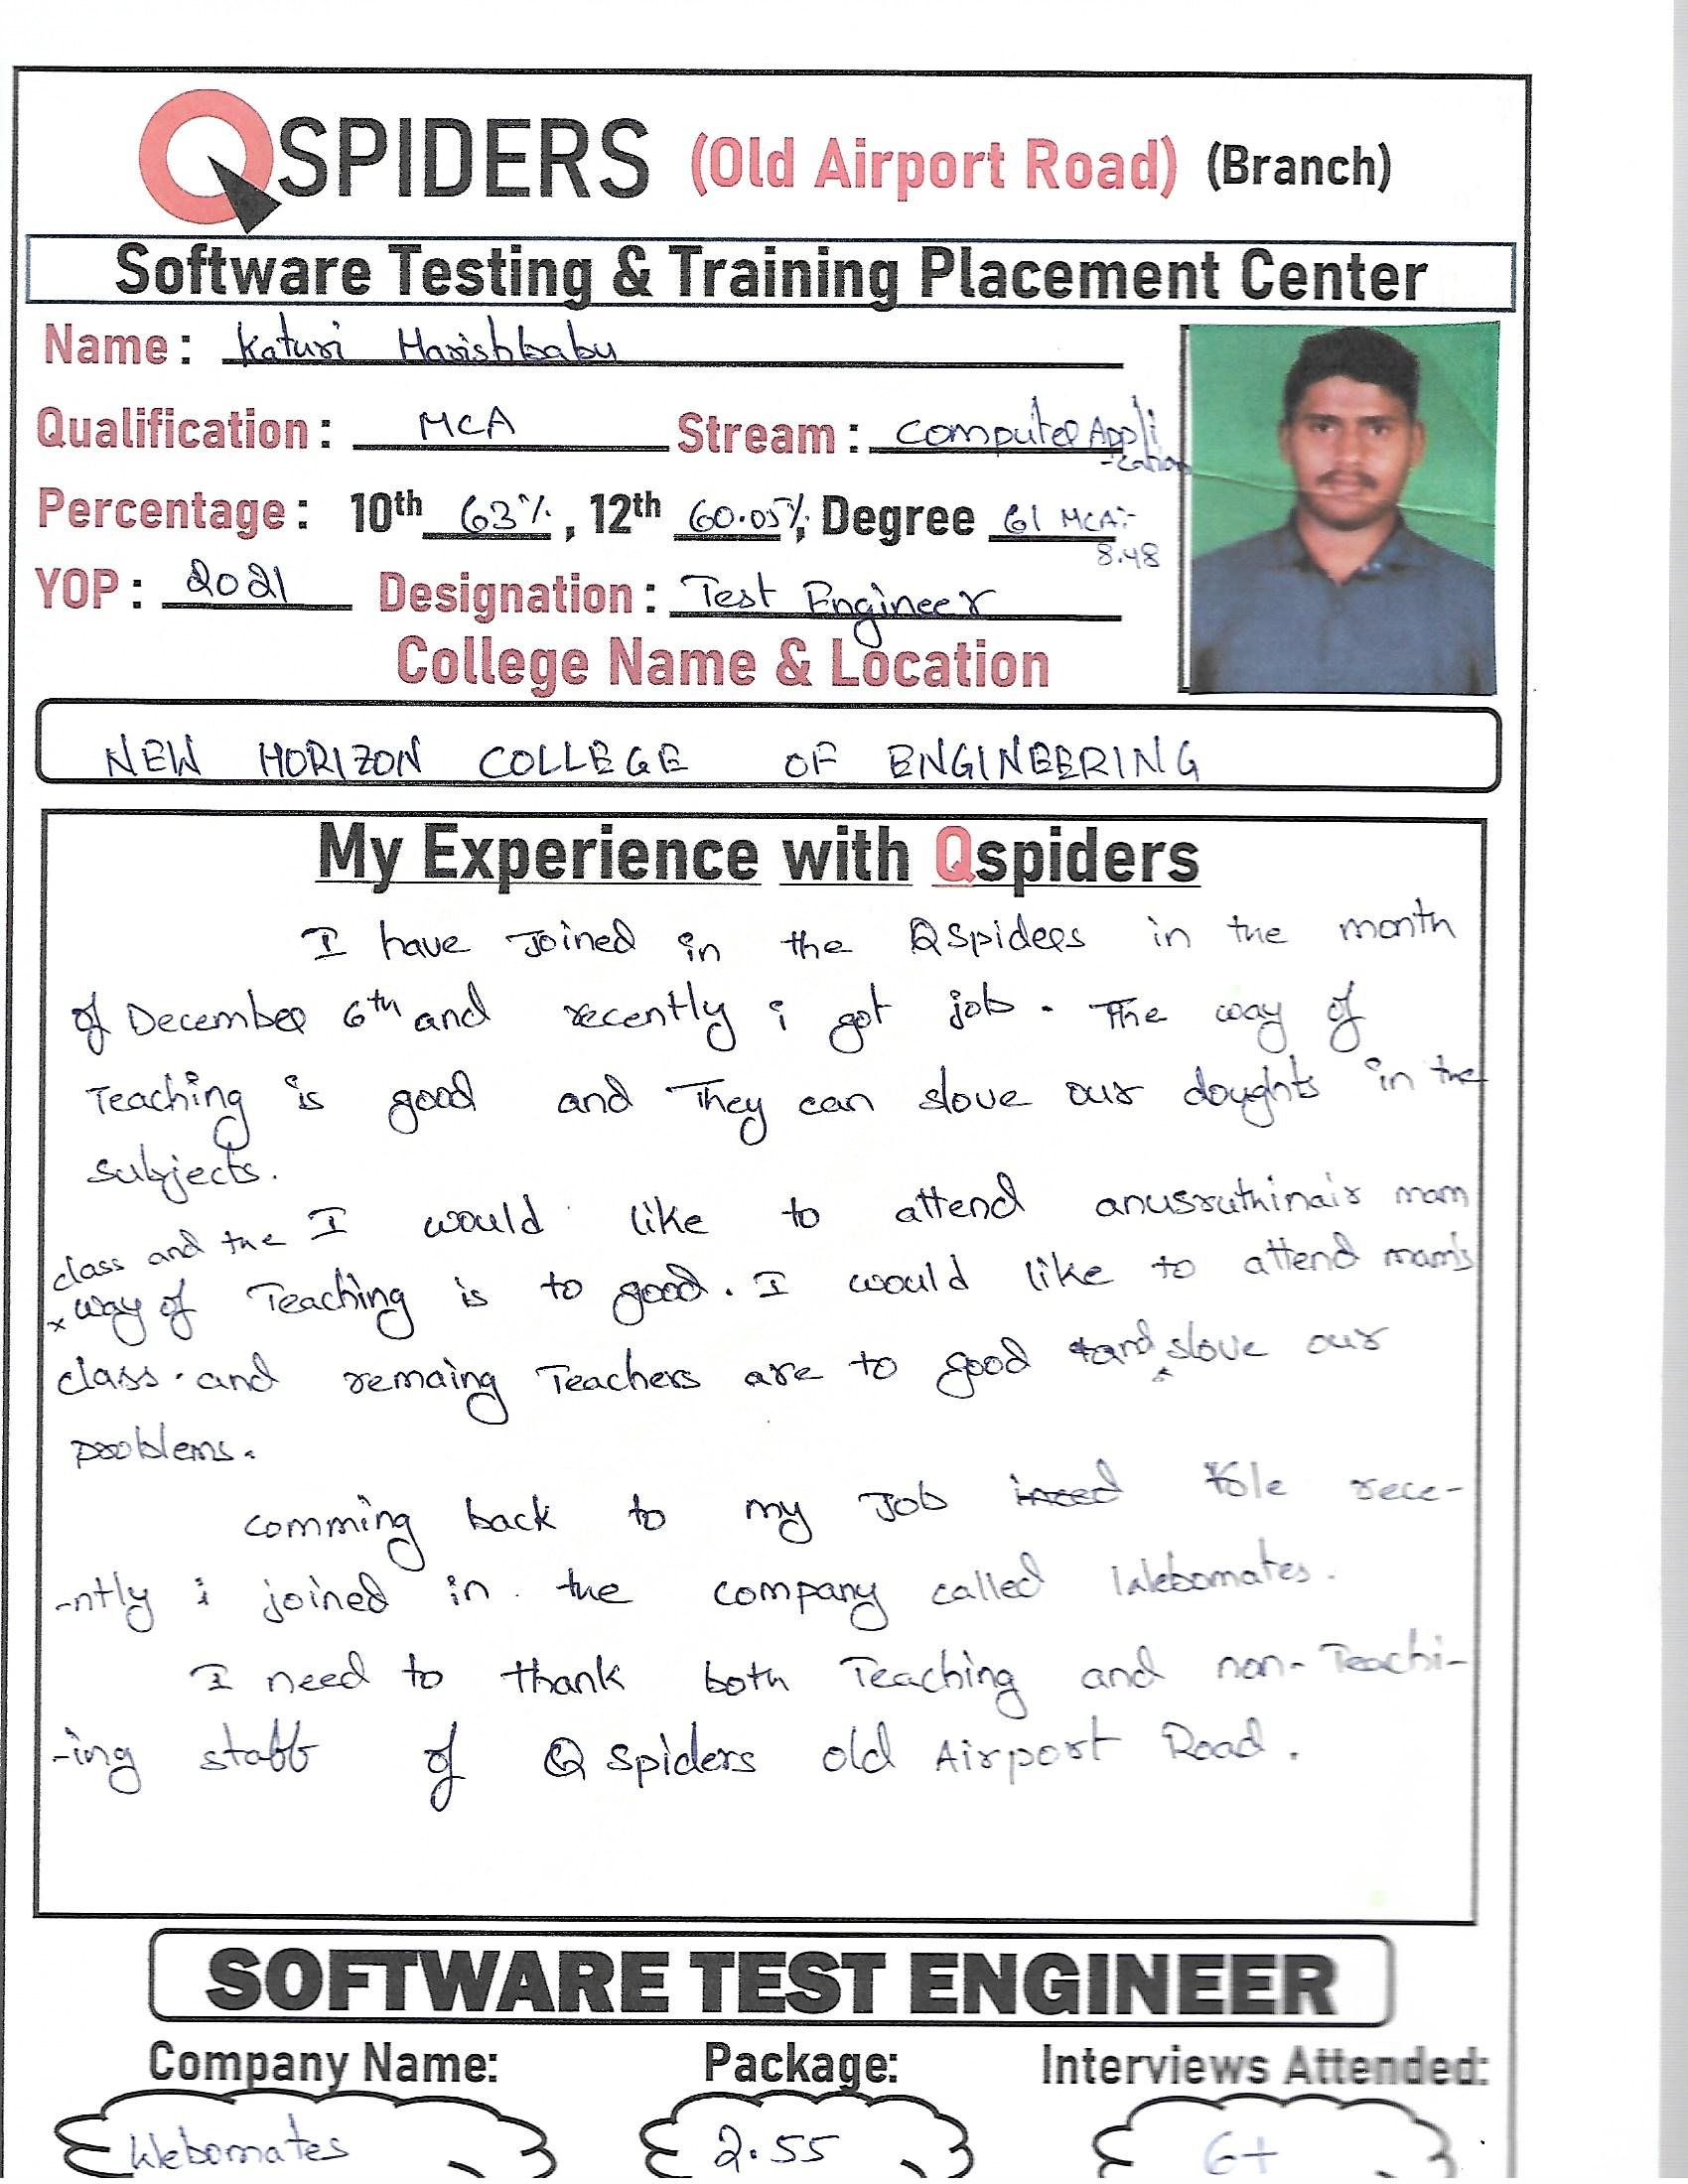 QSPIDERS (Old Airport Road) (Branch)
Software Testing & Training Placement Center
Name : Katuri Harishbabu
Qualification : MCA Stream : Computer Appli
-cation
Percentage : 10th 63%, 12th 60.05%, Degree 61 MCA:-
8.48
YOP : 2021 Designation : Test Engineer
College Name & Location
NEW HORIZON COLLEGE OF ENGINEERING
My Experience with Qspiders
I have Joined in the QSpiders in the month
of December 6th and recently i got job. The way of
Teaching is good and They can slove our doughts in the
subjects.
I would like to attend anusruthinair mam
class and the
way of Teaching is to good. I would like to attend mam's
class. and remaing Teachers are to good and slove our
problems.
comming back to my Job role rece-
-ntly i joined in the company called Webomates.
I need to thank both Teaching and non-Teachi-
-ing staff of Q Spiders old Airport Road.
SOFTWARE TEST ENGINEER
Company Name: Package: Interviews Attended:
Webomates 2.55 6+